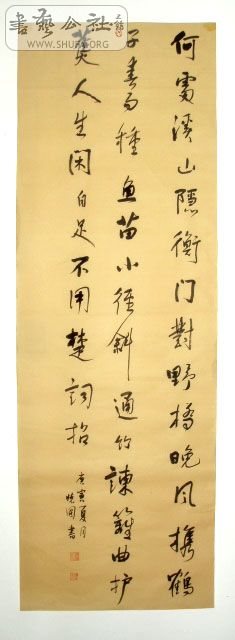 書藝公社
www.SHUFA.ORG
何處溪山隱衡门對野橋晚风携鶴
子春雨種鱼苗小徑斜通竹疎籬曲护
蕉人生闲自足不用楚詞招
庚寅夏月
書